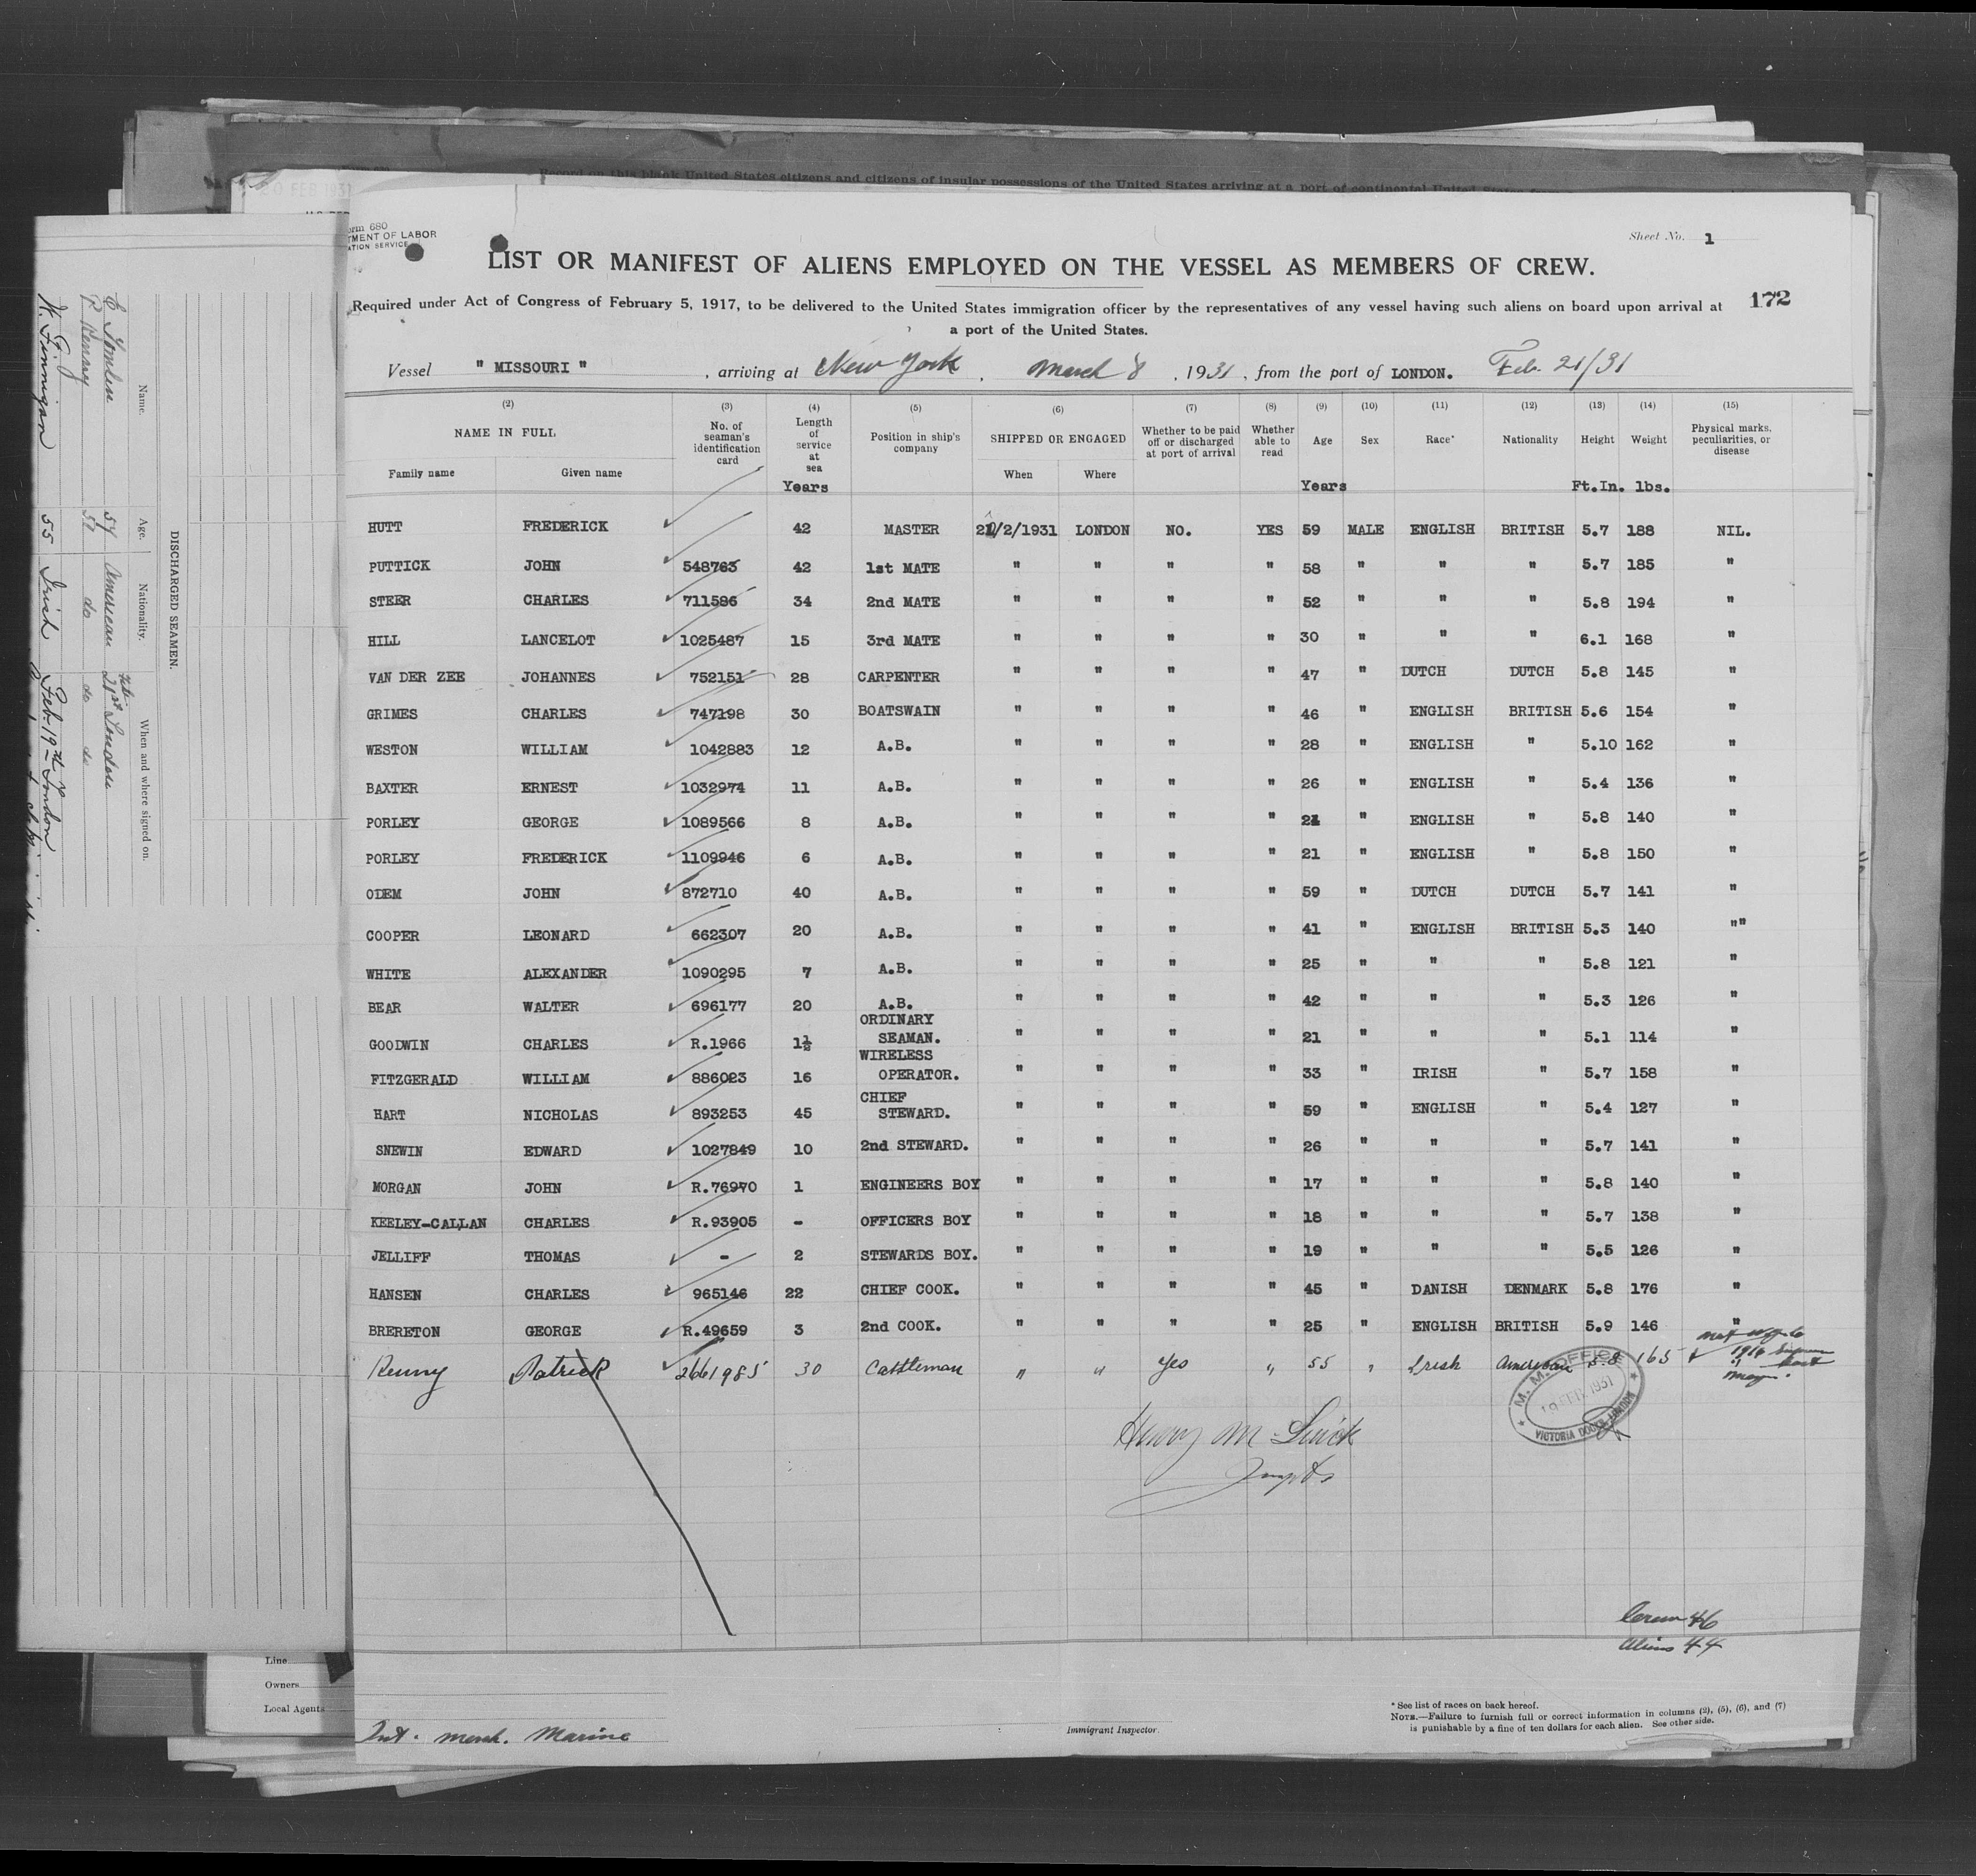 Record on this blank United States citizens and citizens of insular possessions of the United States arriving at a port of continental United States
20 FEB 1931
orm 680
TMENT OF LABOR
ATION SERVICE
Sheet No. 1
LIST OR MANIFEST OF ALIENS EMPLOYED ON THE VESSEL AS MEMBERS OF CREW.
Required under Act of Congress of February 5, 1917, to be delivered to the United States immigration officer by the representatives of any vessel having such aliens on board upon arrival at
a port of the United States.
172
Vessel " MISSOURI " , arriving at New York , March 8 , 1931, from the port of LONDON. Feb. 21/31
(2) (3) (4) (5) (6) (7) (8) (9) (10) (11) (12) (13) (14) (15)
NAME IN FULL No. of seaman's identification card Length of service at sea Position in ship's company SHIPPED OR ENGAGED Whether to be paid off or discharged at port of arrival Whether able to read Age Sex Race* Nationality Height Weight Physical marks, peculiarities, or disease
Family name Given name When Where
Years Years Ft.In. lbs.
HUTT FREDERICK 42 MASTER 21/2/1931 LONDON NO. YES 59 MALE ENGLISH BRITISH 5.7 188 NIL.
PUTTICK JOHN 548763 42 1st MATE " " " " 58 " " " 5.7 185 "
STEER CHARLES 711586 34 2nd MATE " " " " 52 " " " 5.8 194 "
HILL LANCELOT 1025487 15 3rd MATE " " " " 30 " " " 6.1 168 "
VAN DER ZEE JOHANNES 752151 28 CARPENTER " " " " 47 " DUTCH DUTCH 5.8 145 "
GRIMES CHARLES 747198 30 BOATSWAIN " " " " 46 " ENGLISH BRITISH 5.6 154 "
WESTON WILLIAM 1042883 12 A.B. " " " " 28 " ENGLISH " 5.10 162 "
BAXTER ERNEST 1032974 11 A.B. " " " " 26 " ENGLISH " 5.4 136 "
PORLEY GEORGE 1089566 8 A.B. " " " " 24 " ENGLISH " 5.8 140 "
PORLEY FREDERICK 1109946 6 A.B. " " " " 21 " ENGLISH " 5.8 150 "
ODEM JOHN 872710 40 A.B. " " " " 59 " DUTCH DUTCH 5.7 141 "
COOPER LEONARD 662307 20 A.B. " " " " 41 " ENGLISH BRITISH 5.3 140 ""
WHITE ALEXANDER 1090295 7 A.B. " " " " 25 " " " 5.8 121 "
BEAR WALTER 696177 20 A.B. " " " " 42 " " " 5.3 126 "
GOODWIN CHARLES R.1966 1½ ORDINARY SEAMAN. " " " " 21 " " " 5.1 114 "
FITZGERALD WILLIAM 886023 16 WIRELESS OPERATOR. " " " " 33 " IRISH " 5.7 158 "
HART NICHOLAS 893253 45 CHIEF STEWARD. " " " " 59 " ENGLISH " 5.4 127 "
SNEWIN EDWARD 1027849 10 2nd STEWARD. " " " " 26 " " " 5.7 141 "
MORGAN JOHN R.76970 1 ENGINEERS BOY " " " " 17 " " " 5.8 140 "
KEELEY-CALLAN CHARLES R.93905 - OFFICERS BOY " " " " 18 " " " 5.7 138 "
JELLIFF THOMAS - 2 STEWARDS BOY. " " " " 19 " " " 5.5 126 "
HANSEN CHARLES 965146 22 CHIEF COOK. " " " " 45 " DANISH DENMARK 5.8 176 "
BRERETON GEORGE R.49659 3 2nd COOK. " " " " 25 " ENGLISH BRITISH 5.9 146 "
Kenny Patrick 2661985 30 Cattleman " " Yes " 55 " Irish American 5.8 165
1916
M. M. OFFICE
19 FEB 1931
VICTORIA DOCKS LONDON
Crew 46
Aliens 44
Int. Merch. Marine
Immigrant Inspector.
* See list of races on back hereof.
NOTE.—Failure to furnish full or correct information in columns (2), (5), (6), and (7)
is punishable by a fine of ten dollars for each alien. See other side.
Line
Owners
Local Agents
DISCHARGED SEAMEN.
Name. Age. Nationality. When and where signed on.
54 American Feb 21st London
do do do
W. Finnigan 55 Irish Feb. 19th London